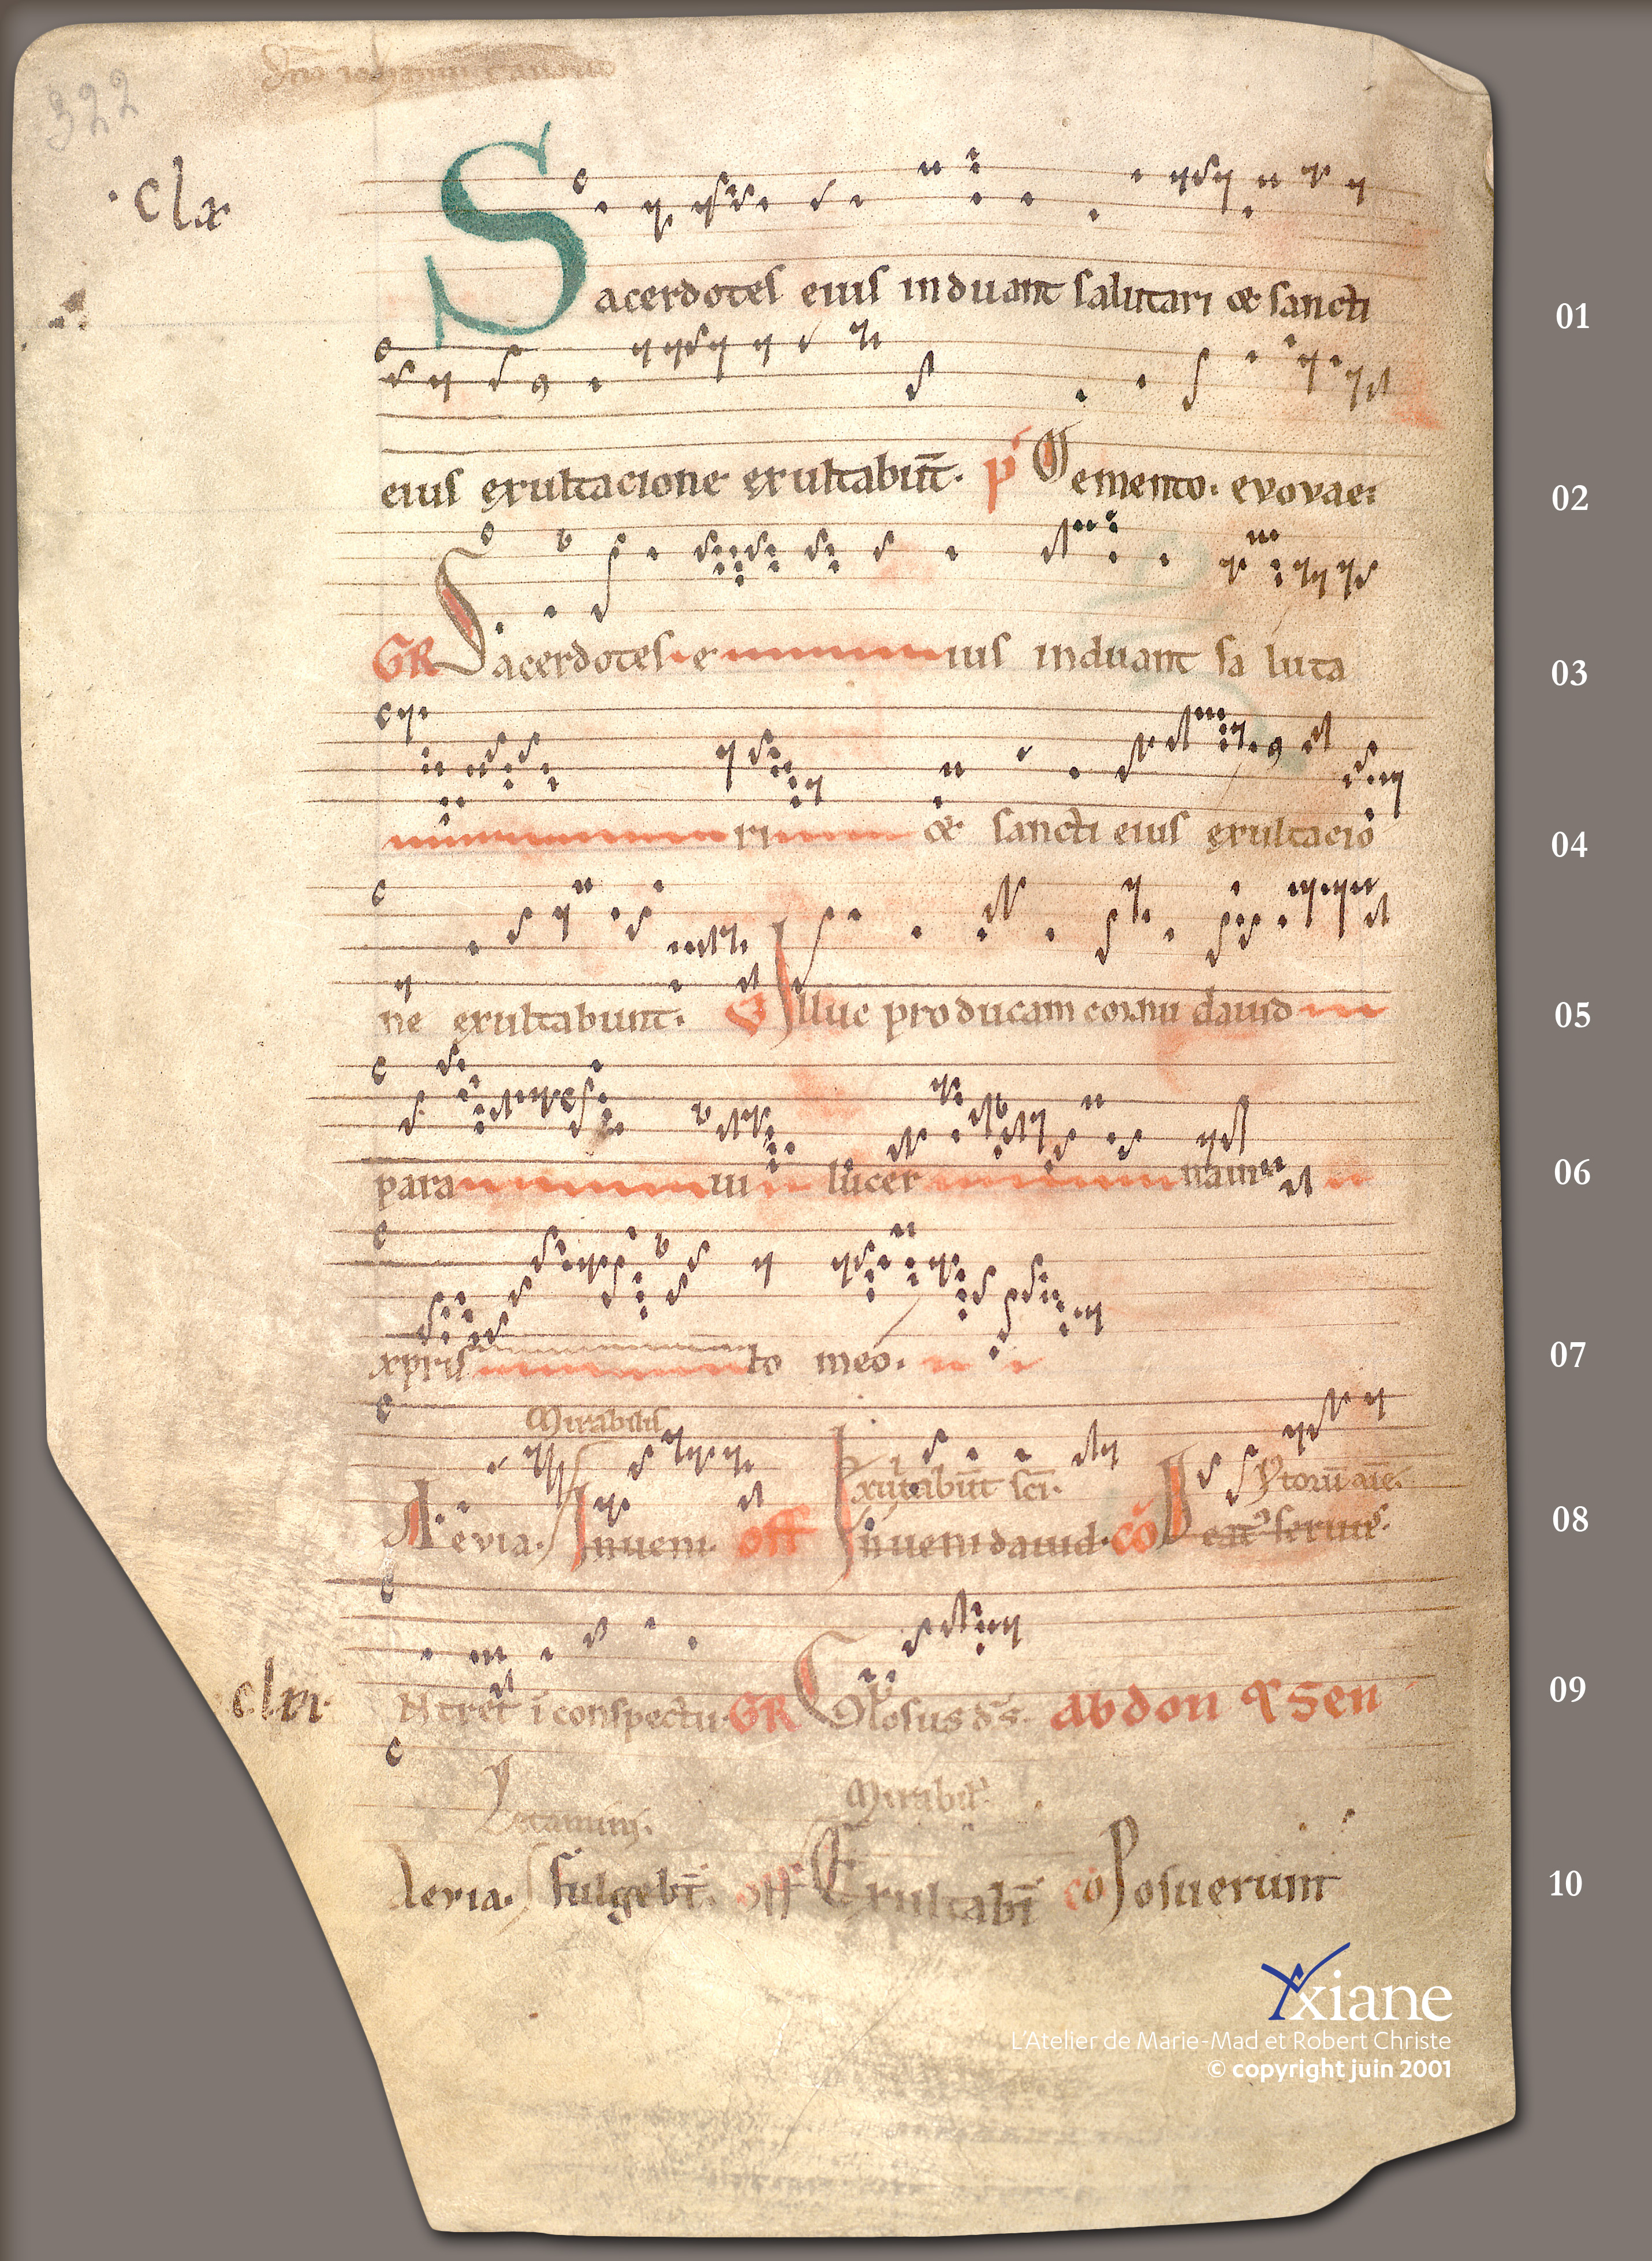 322
·clx·
Sacerdotes eius induant salutari & sancti
01
eius exultacione exultabūt. p̄ Memento. evovae:
02
GR Sacerdotes e ius induant sa luta
03
ri & sancti eius exultacio
04
ne exultabunt. V Illuc producam cornu dauid
05
para ui lucer nam
06
xpristo meo.
07
Mirabilis
Exultabūt sc̄i.
Aevia. Inueni. off Inueni dauid. cō Beat' seruus.
08
clxi·
Ntret ī conspectu. GR Glosus ds̄. Abdon & Sen
09
Letamini.
Mirabil'
Aevia. Fulgebt̄. off Exultabt̄ cō Posuerunt
10
Axiane
L'Atelier de Marie-Mad et Robert Christe
© copyright juin 2001